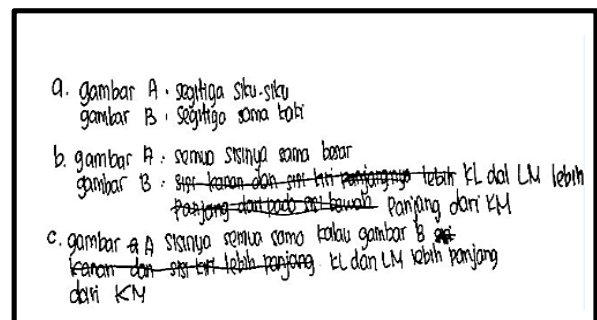 a. gambar A : segitiga siku-siku
gambar B : segitiga sama kaki
b. gambar A : semua sisinya sama besar
gambar B : sisi kanan dan sisi kiri panjangnya lebih KL dal LM lebih
panjang dari pada sisi bawah Panjang dari KM
c. gambar A sisinya semua sama kalau gambar B
kanan dan sisi kiri lebih panjang. KL dan LM lebih panjang
dari KM